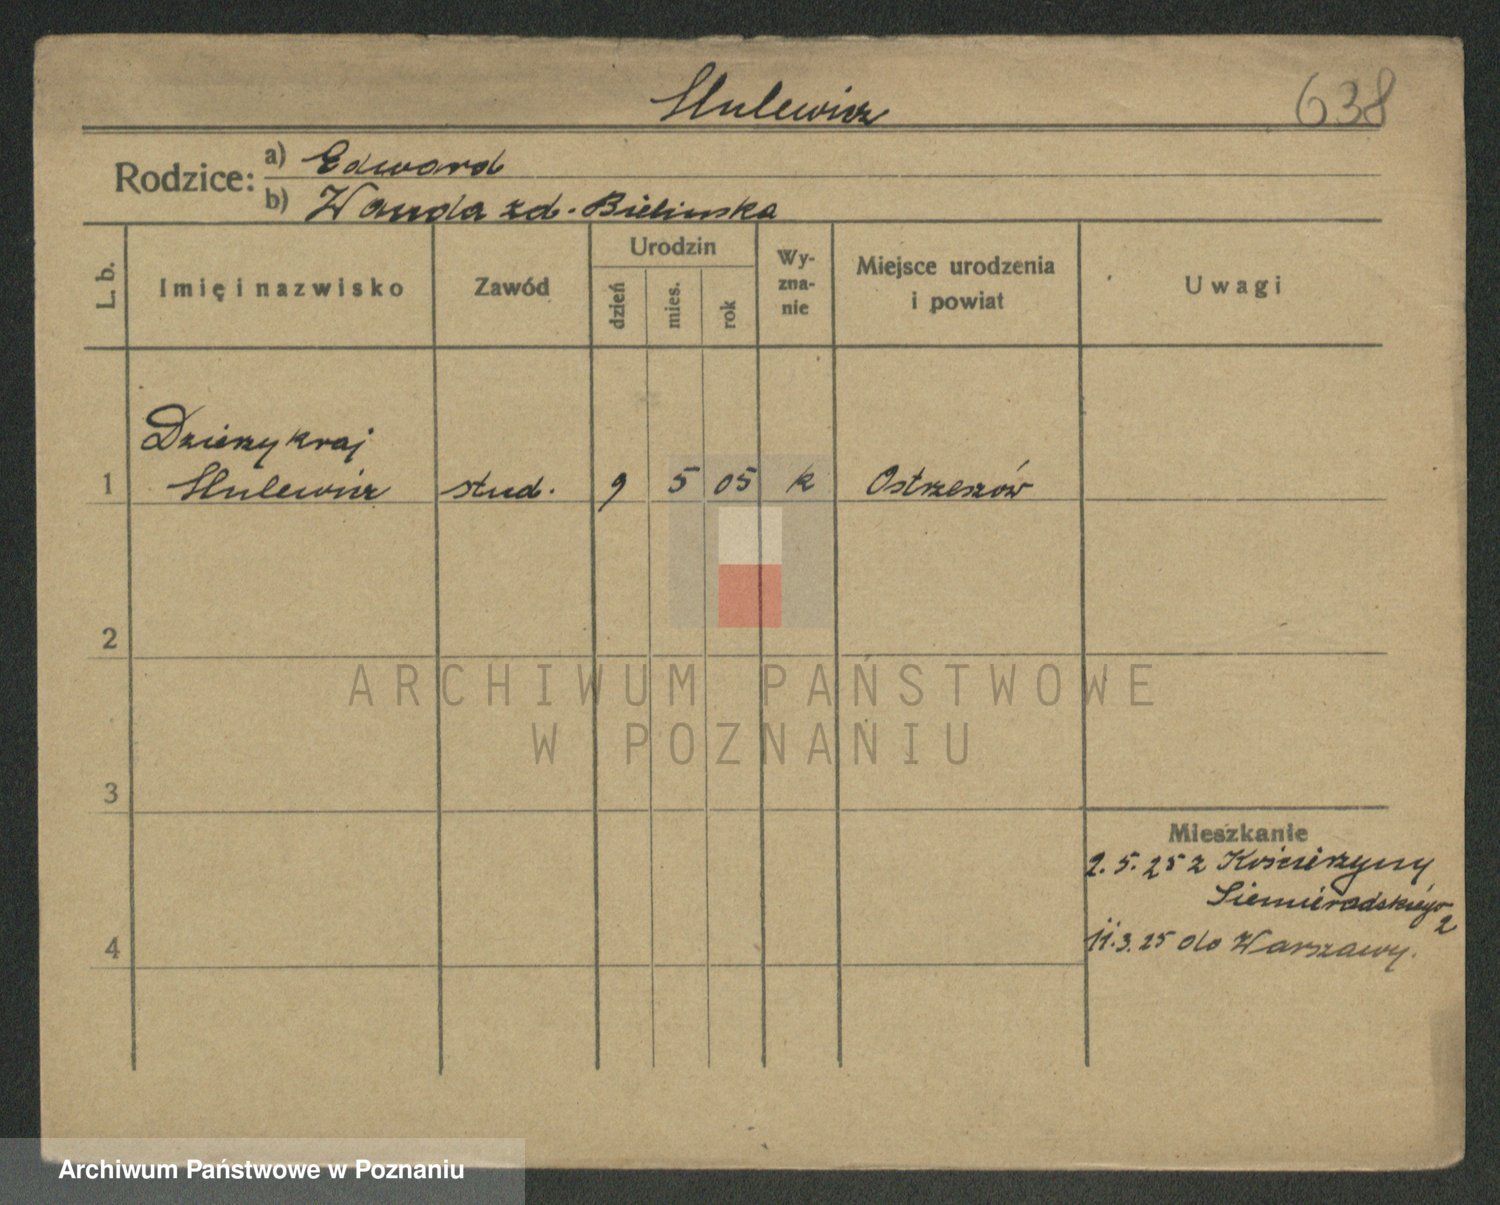 Hulewicz
638
Rodzice: a) Edward
b) Wanda zd. Bielinska
L. b.
Imię i nazwisko
Zawód
Urodzin
dzień
mies.
rok
Wy-
zna-
nie
Miejsce urodzenia
i powiat
Uwagi
Dzierżykraj
1 Hulewicz stud. 9 5 05 k Ostrzeszów
2
ARCHIWUM PAŃSTWOWE
W POZNANIU
3
Mieszkanie
2.5.25 z Kościerzyny
Siemiradskiego
2
4 11.3.25 do Warszawy.
Archiwum Państwowe w Poznaniu